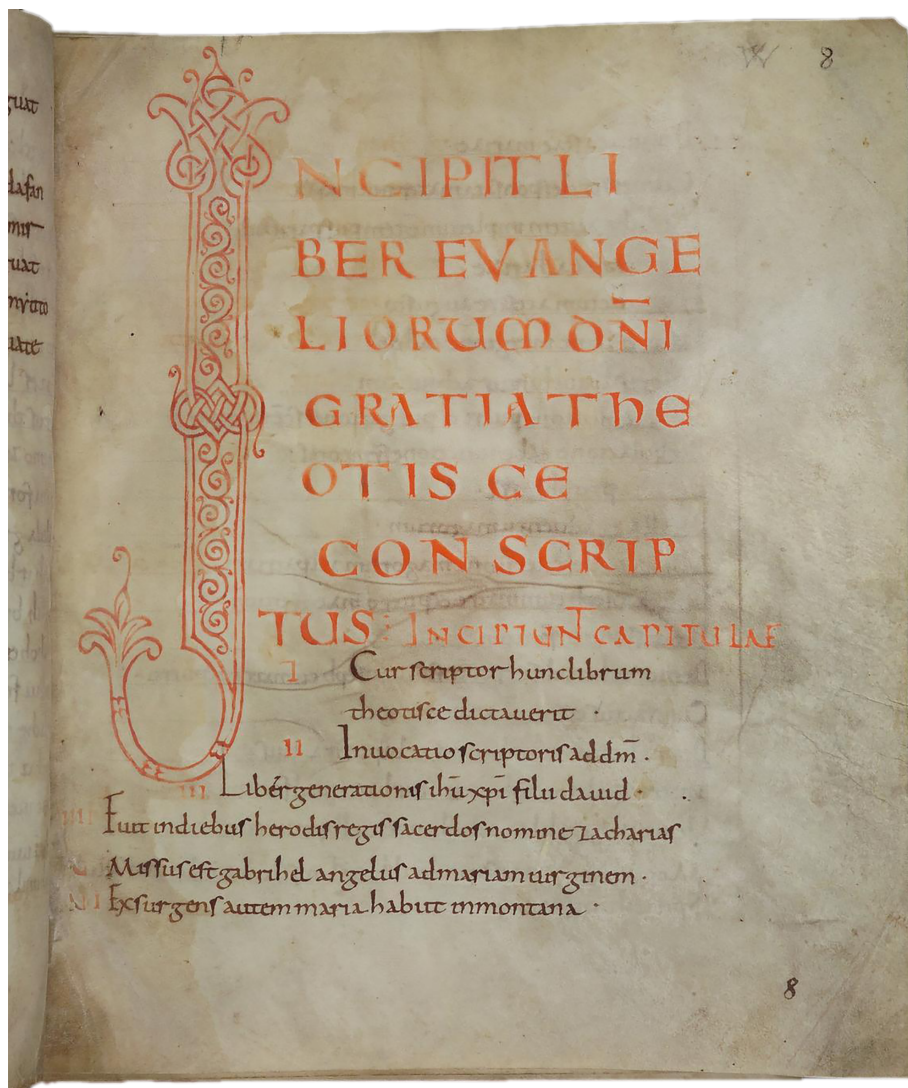 W 8
INCIPIT LI
BER EVANGE
LIORUM DN̄I
GRATIA THE
OTISCE
CONSCRIP
TUS: INCIPIUNT CAPITULAE
I Cur scriptor hunc librum
theotisce dictauerit ·
II Inuocatio scriptoris ad dm̄ ·
III Liber generationis ihū xpī filii dauid ·
IIII Fuit in diebus herodis regis sacerdos nomine zacharias
V Missus est gabrihel angelus ad mariam uirginem ·
VI Exsurgens autem maria habiit in montana ·
8
guat
mis
uat
uate